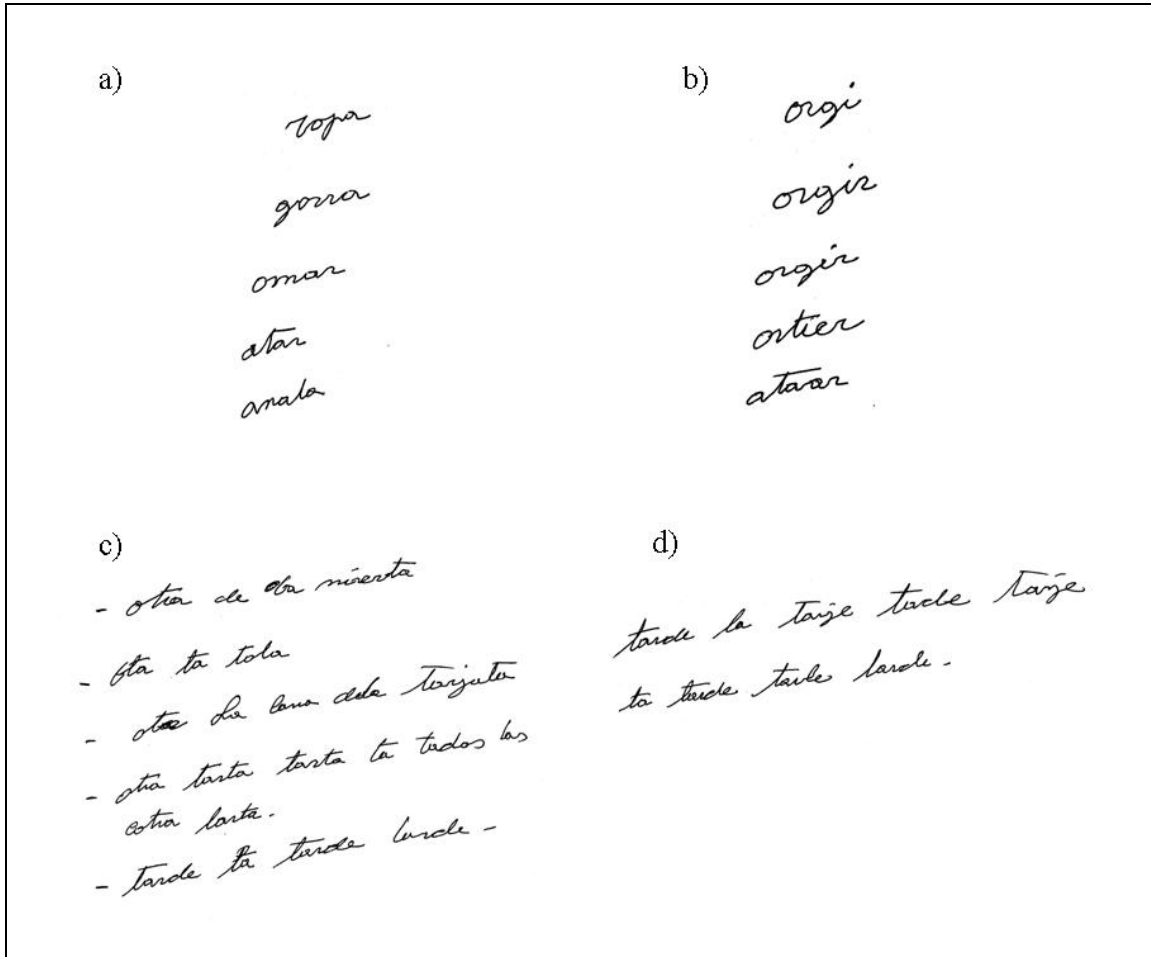 a)
ropa
gorra
omar
atar
anala
b)
orgi
orgir
orgir
ortier
ataar
c)
- otra de
- ta tola
- La cana dela Tarjata
- otra tarta tarta ta todos las
cotra larta.
- tarde ta tarde larde -
d)
tarde la Tarje tacle Tarje
ta tarde tarle larde -